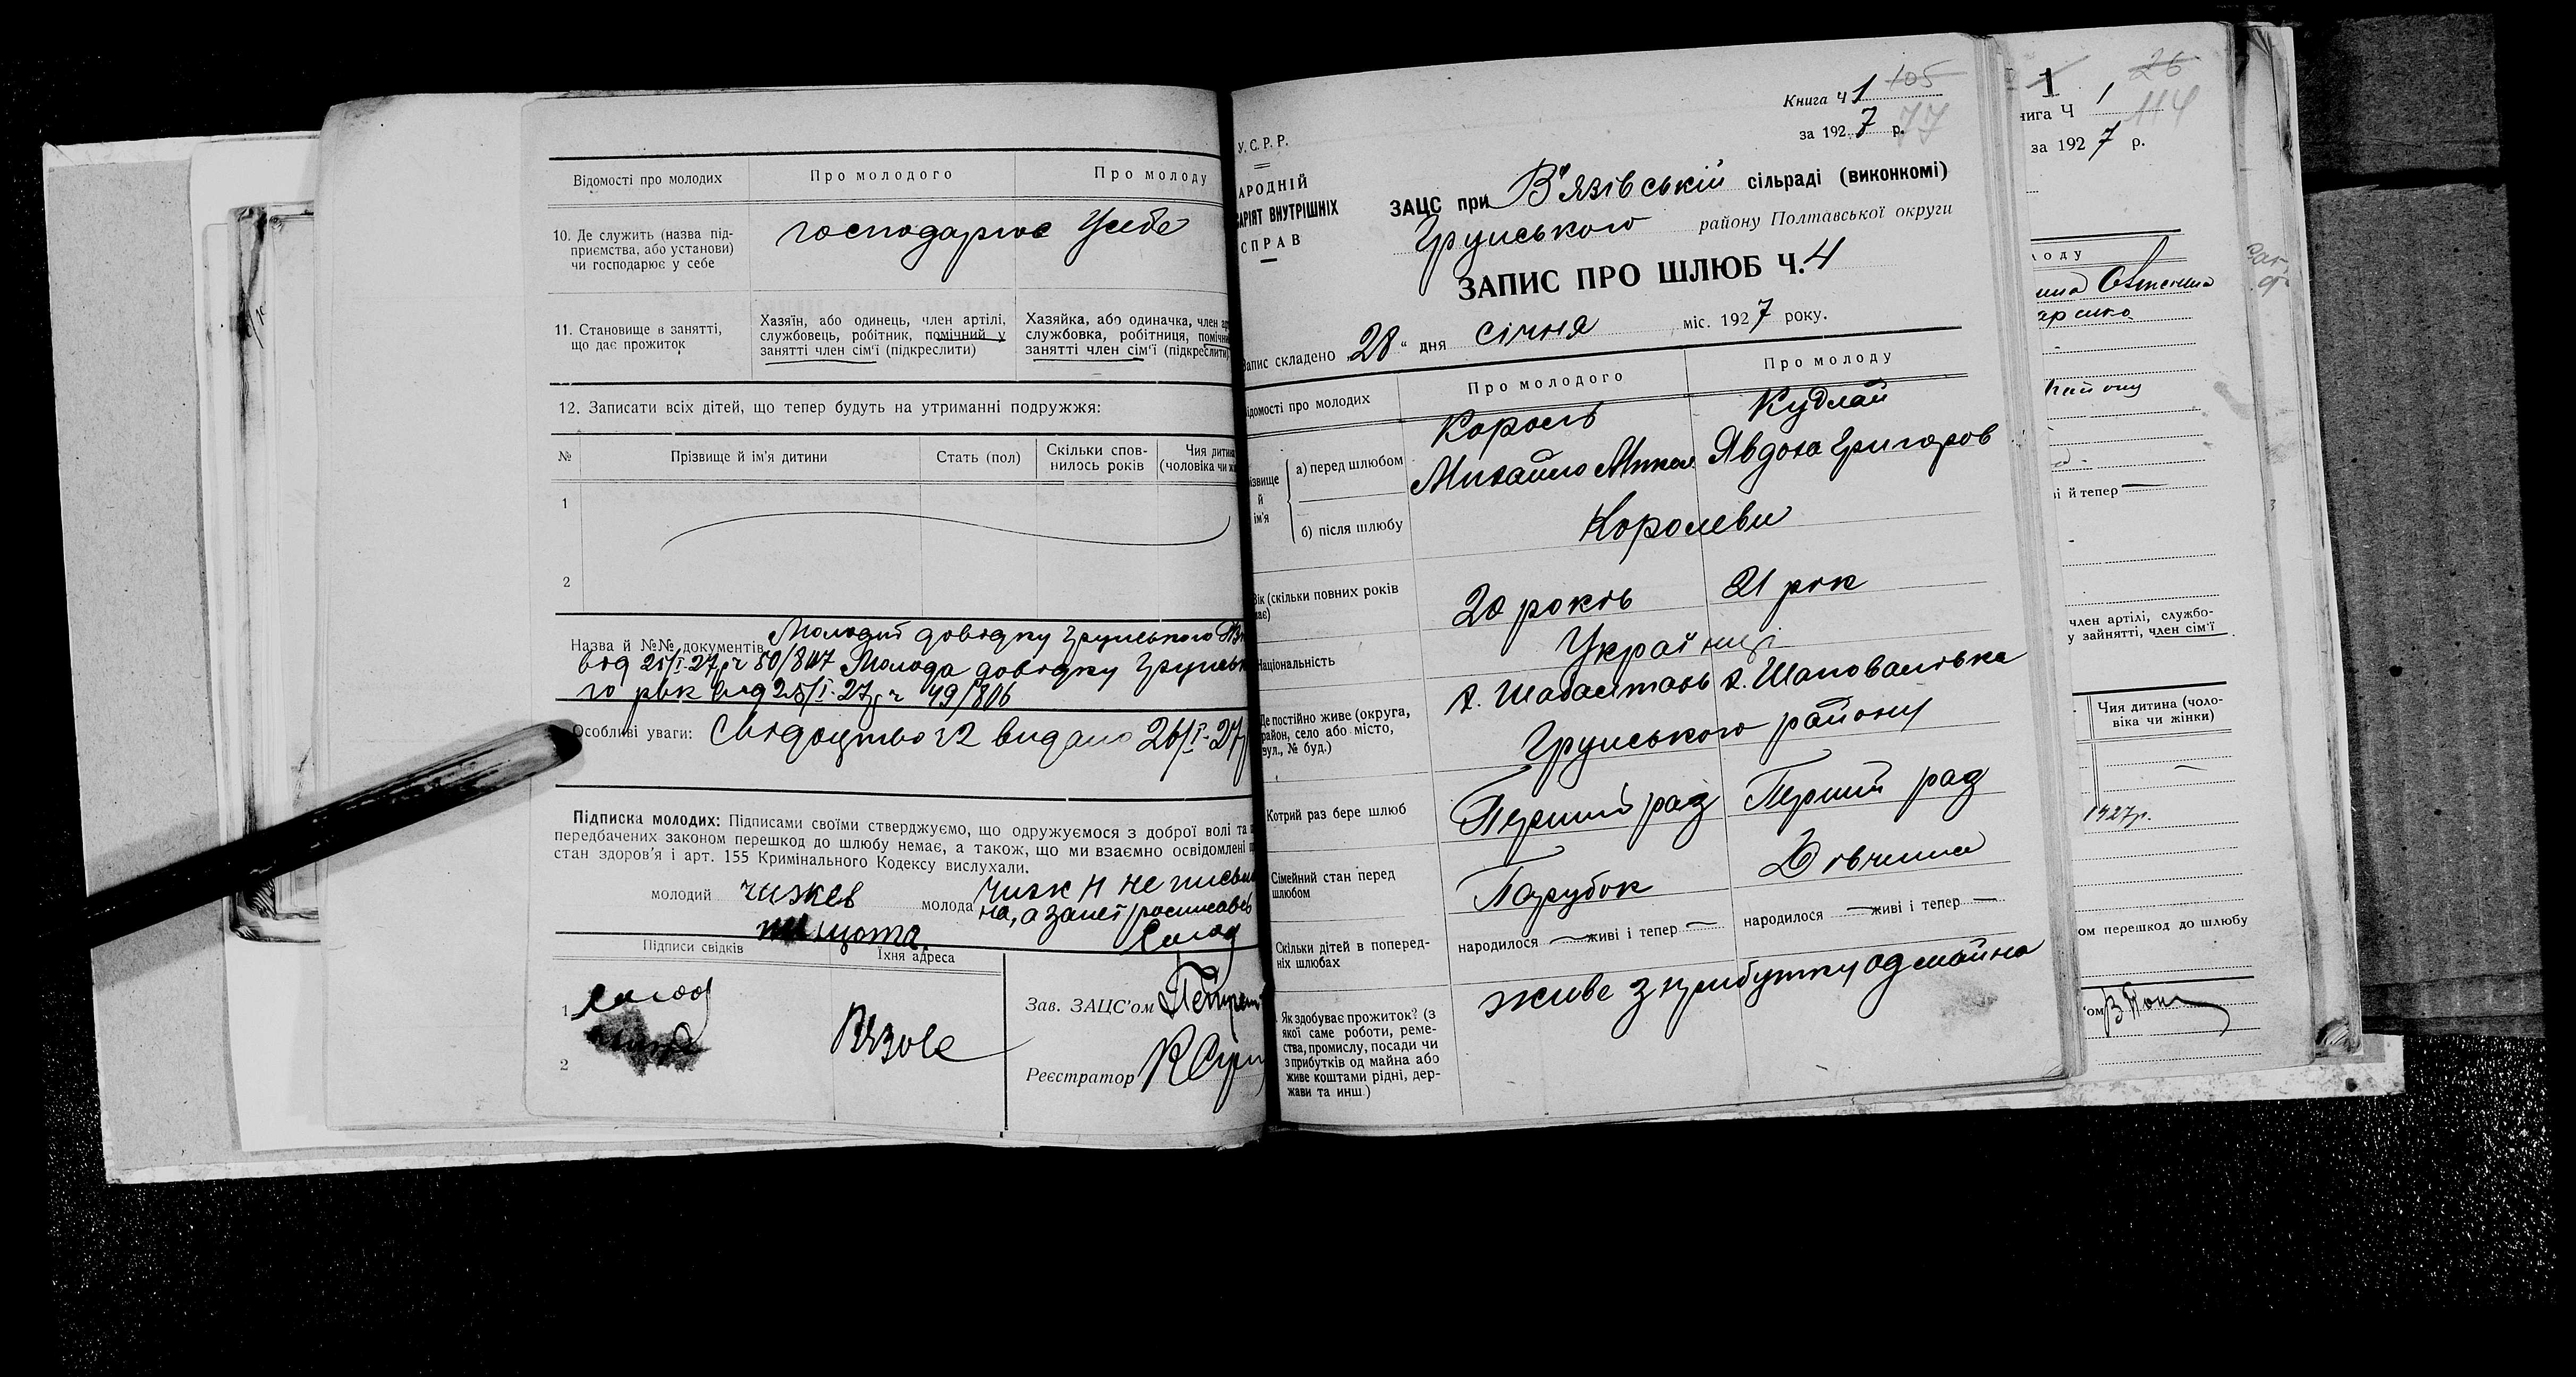 Відомості про молодих
Про молодого
Про молоду
10. Де служить (назва під-
приємства, або установи)
чи господарює у себе
господарює у себе
11. Становище в занятті,
що дає прожиток
Хазяїн, або одинець, член артілі,
службовець, робітник, помічний у
занятті член сім'ї (підкреслити)
Хазяйка, або одиначка, член ар
службовка, робітниця, помічн
занятті член сім'ї (підкреслити)
12. Записати всіх дітей, що тепер будуть на утриманні подружжя:
№
Прізвище й ім'я дитини
Стать (пол)
Скільки спов-
нилось років
Чия дитина
(чоловіка чи жі
1
2
Назва й №№ документів Молодий довідку Грунського
від 25/I-27р ч 50/807 Молода довідку Грунсько
го рвк від 25/I-27р ч 49/806
Особливі уваги: Свідоцтво ч2 видано 26/I-27
Підписка молодих: Підписами своїми стверджуємо, що одружуємося з доброї волі та
передбачених законом перешкод до шлюбу немає, а також, що ми взаємно освідомлені п
стан здоров'я і арт. 155 Кримінального Кодексу вислухали.
молодий
молода
на, а за неї росписавсь
Підписи свідків
Їхня адреса
1
2
Вязове
Зав. ЗАЦС'ом
Реєстратор
У.С.Р.Р.
АРОДНІЙ
САРІЯТ ВНУТРІШНІХ
СПРАВ
Книга ч 1 105
за 1927 р. 77
ЗАЦС при В'язівській сільраді (виконкомі)
Грунського району Полтавської округи
ЗАПИС ПРО ШЛЮБ Ч. 4
Запис складено „28" дня січня міс. 1927 року.
ідомості про молодих
Про молодого
Про молоду
ізвище
й
ім'я
а) перед шлюбом
Король
Михайло Микол
Кудлай
Явдоха Григоров
б) після шлюбу
Королеви
Вік (скільки повних років
має)
20 років
21 рік
Національність
Українці
Де постійно живе (округа,
район, село або місто,
вул., № буд.)
х. Шабалтаїв х. Шаповалівка
Грунського району
Котрий раз бере шлюб
Перший раз
Перший раз
Сімейний стан перед
шлюбом
Парубок
Дівчина
Скільки дітей в поперед-
ніх шлюбах
народилося — живі і тепер —
народилося — живі і тепер —
Як здобуває прожиток? (з
якої саме роботи, реме-
ства, промислу, посади чи
з прибутків од майна або
живе коштами рідні, дер-
жави та инш.)
живе з прибутку од майна
1 26
нига Ч 1 114
за 1927 р.
ЛОДУ
району
і й тепер —
член артілі, службо-
у зайнятті, член сім'ї
Чия дитина (чоло-
віка чи жінки)
1927р.
ом перешкод до шлюбу
'ом